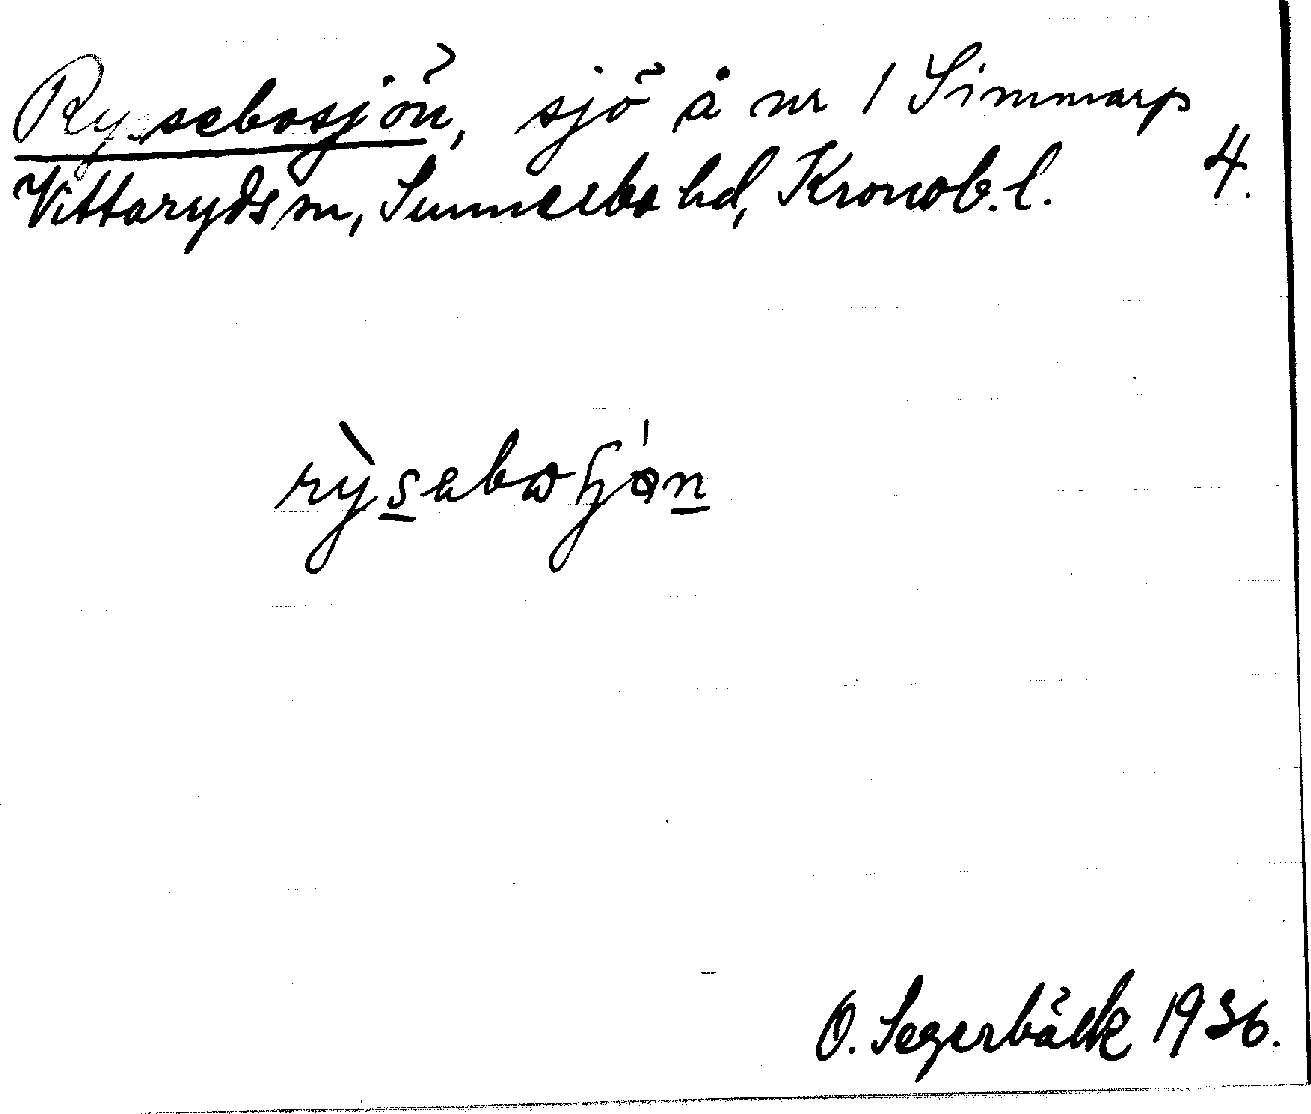 Ryssebosjön, sjö å nr 1 Simmarp
4.
Vittaryds sn, Sunnerbo hd, Kronob. l.
rỳsebωɧǿn
O. Segerbäck 1936.